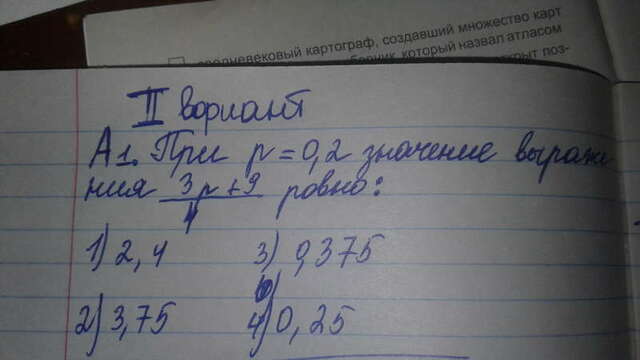 средневековый картограф, создавший множество карт
который назвал атласом
крыт поз-
II вариант
А1. При p = 0,2 значение выраже
ния 3p+9/4 ровно:
1) 2,4 3) 0,375
2) 3,75 4) 0,25